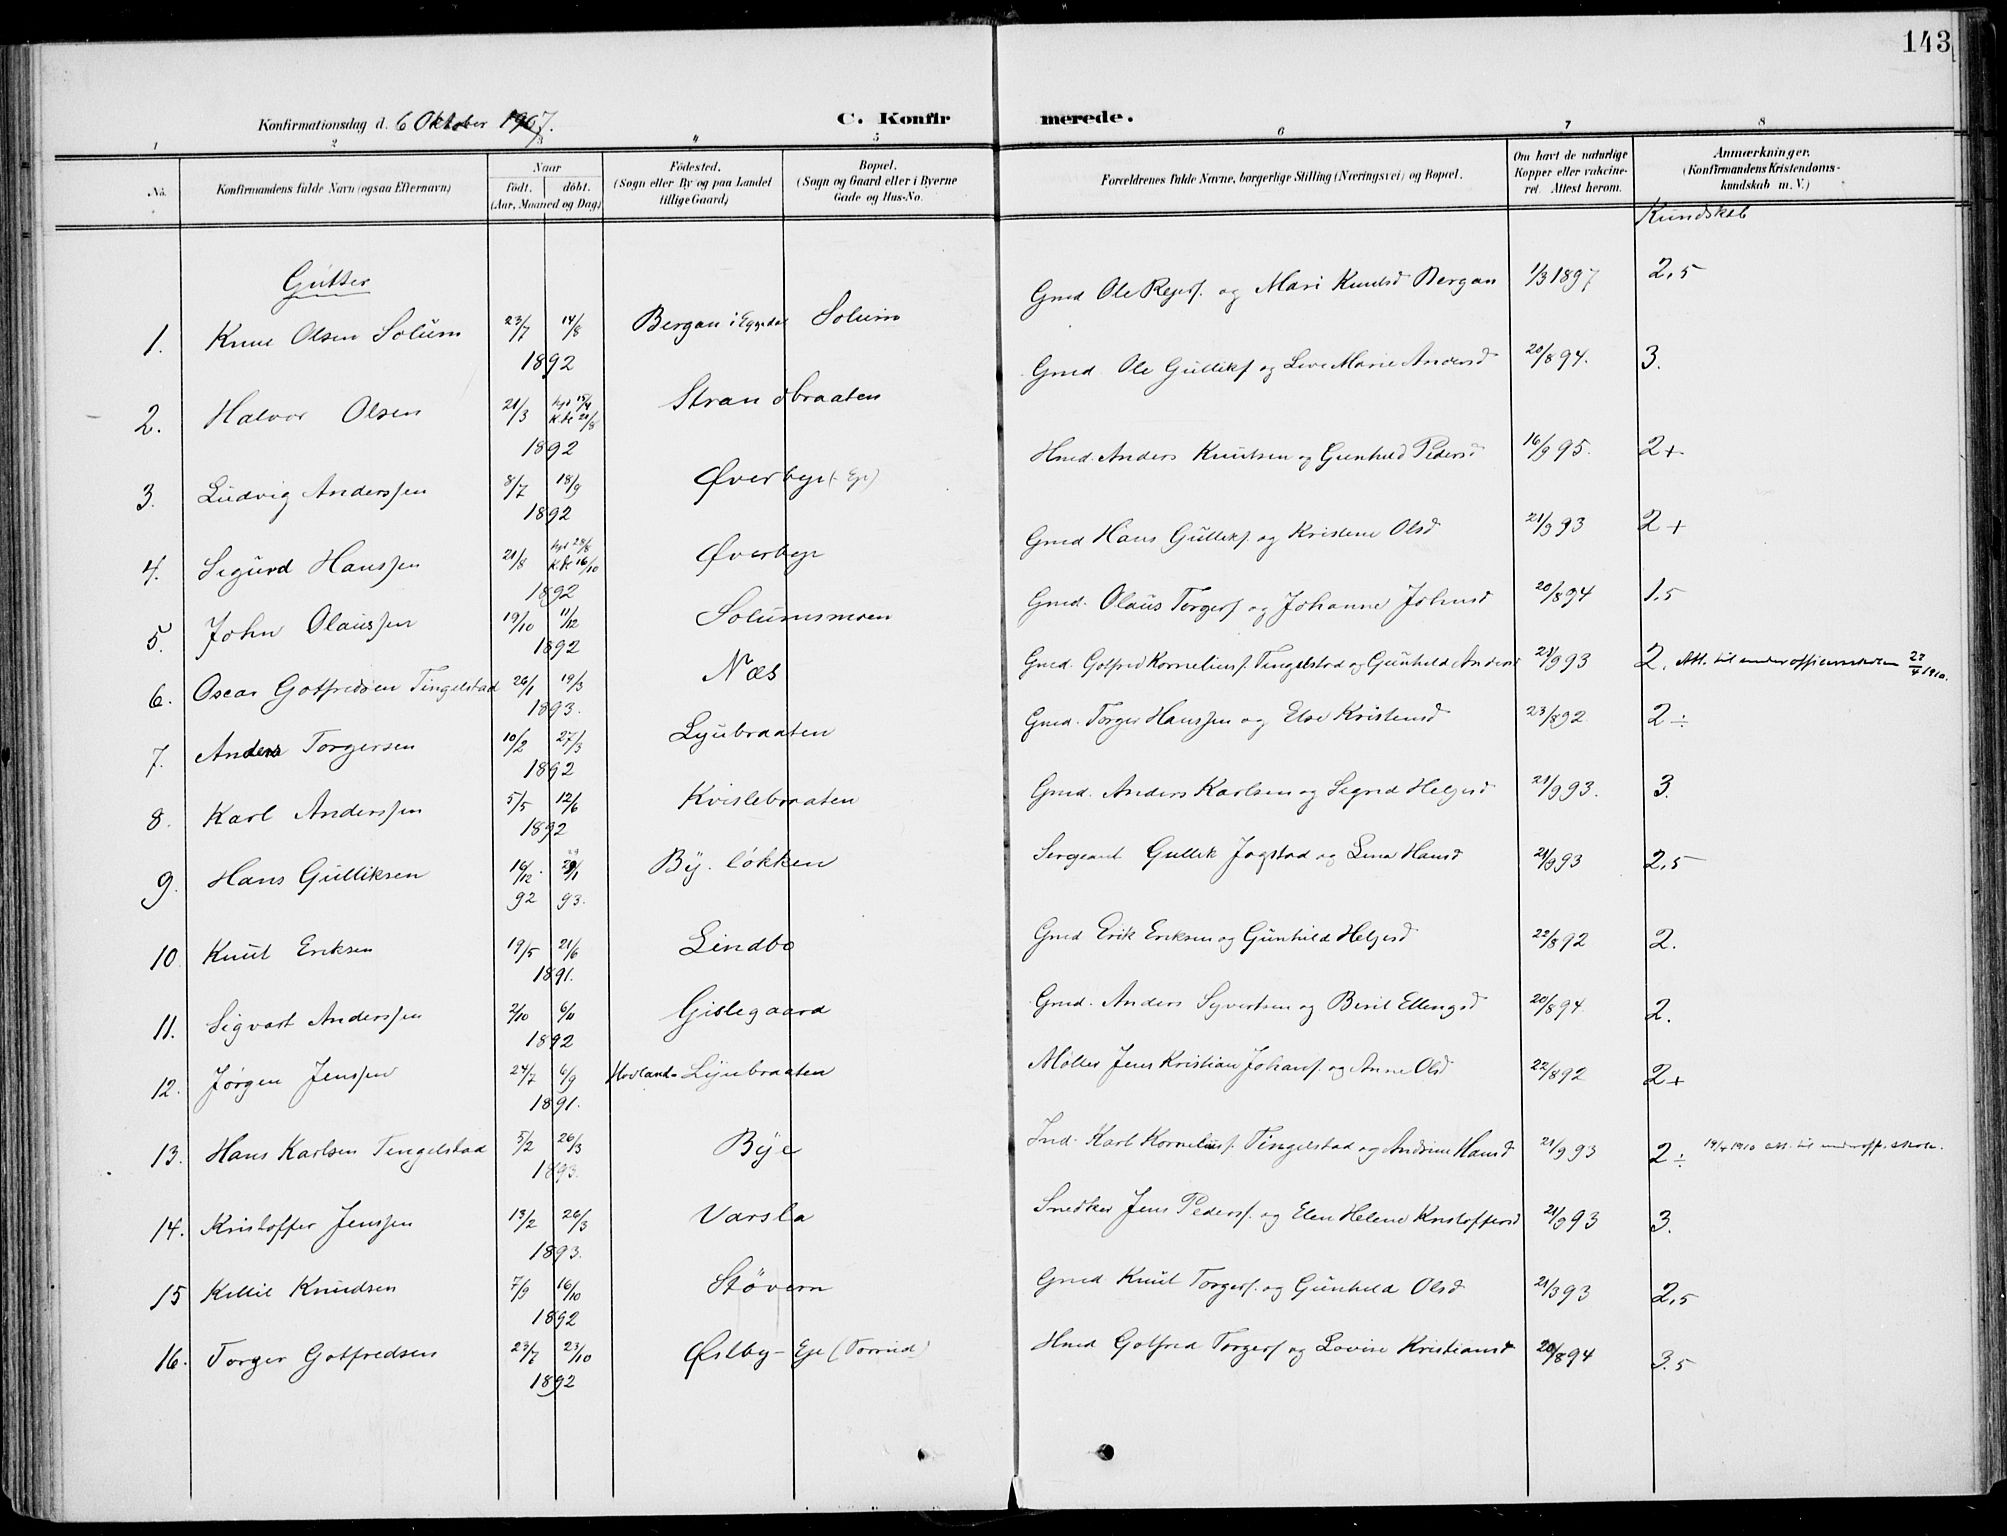 143
Konfirmationsdag d. 6 Oktober 1907.
C. Konfirmerede.
1 2 3 4 5 6 7 8
No. Konfirmandens fulde Navn (ogsaa Efternavn) Naar født. døbt. (Aar, Maaned og Dag) Födested. (Sogn eller By og paa Landet tillige Gaard) Bopæl. (Sogn og Gaard eller i Byerne Gade og Hus-No. Forældrenes fulde Navne, borgerlige Stilling (Næringsvei) og Bopæl. Om havt de naturlige Kopper eller vakcineret. Attest herom. Anmærkninger. (Konfirmandens Kristendomskundskab m. V.)
Kundskab
Gutter
1. Knut Olsen Solum 23/7 14/8 1892 Bergan i Eggedal Solum Gmd Ole Rejersf. og Mari Knutsd Bergan 1/3 1897 2,5
2. Halvor Olsen 21/3 hjd 15/4 K dt 21/8 1892 Strandbraaten Gmd. Ole Gulliksf og Live Marie Andersd 20/8 94. 3.
3. Ludvig Anderssen 8/7 18/9 1892 Øverbye (Eje) Hmd. Anders Knutsen og Gunhild Pedersd 16/9 95. 2+
4. Sigurd Hanssen 21/8 hjd 28/8 K dt 16/10 1892 Øverbye Gmd Hans Gulliksf. og Kristine Olsd 21/9 93 2+
5. John Olaussen 19/10 11/12 1892 Solumsmoen Gmd. Olaus Torgersf og Johanne Johnsd 20/8 94 1,5
6. Oscar Gotfredsen Tingelstad 26/1 19/3 1893. Næs Gmd. Gotfred Korneliusf. Tingelstad og Gunhild Andersd 21/9 93 2. Att. til underofficersskolen 27/4 1910.
7. Anders Torgersen 10/2 27/3 1892 Lyubraaten Gmd. Torger Hanssen og Else Kristensd 23/8 92 2÷
8. Karl Anderssen 5/5 12/6 1892 Kvislebraaten Gmd. Anders Karlsen og Sigrid Helgesd 21/9 93. 3.
9. Hans Gulliksen 16/12. 29/1 92 93. By. løkken Sergeant Gullik Jogstad og Lina Hansd 21/9 93 2,5
10 Knut Eriksen 19/5 21/6 1891. Lindbo Gmd Erik Eriksen og Gunhild Helgesd 22/8 92 2.
11. Sigvart Anderssen 2/10 6/11 1892 Gislegaard Gmd. Anders Syvertsen og Berit Ellingsd 20/8 94. 2.
12. Jørgen Jenssen 24/7 6/9 1891. Hovland-Lyubraaten Møller Jens Kristian Johansf. og Anne Olsd 22/8 92 2+
13. Hans Karlsen Tingelstad 5/2 26/3 1893. Bye Ind. Karl Korneliusf. Tingelstad og Andrine Hansd 21/9 93 2÷ 19/4 1910 att. til underoff. skole.
14. Kristoffer Jenssen 13/2 26/3 1893. Varsla Snedker Jens Pedersf. og Elen Helene Kristoffersd 21/9 93 3.
15 Kittil Knudsen 7/9 16/10 1892 Støvern Gmd Knut Torgersf. og Gunhild Olsd 21/3 93 2,5
16. Torger Gotfredsen 23/7 23/10 1892 Østby- Eje (Torrud) Hmd Gotfred Torgersf og Lovise Kristiansd 20/8 94 3.5